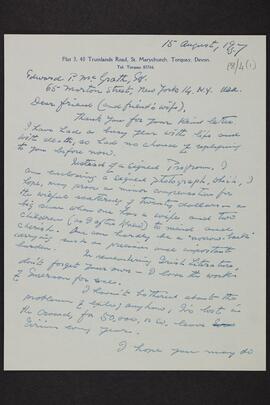 Flat 3, 40 Trumlands Road, St. Marychurch, Torquay, Devon.
Tel. Torquay
15 August, 1957
P8/4(1)
Edward P. Mc Grath, Esq.
65 Morton Street, New York 14. N.Y. USA.
Dear friend (and friend's wife),
Thank you for your kind letter.
I have had a busy year with life and
with death, so had no chance of replying
to you before now.
Instead of a signed Program, I
am enclosing a signed photograph, which, I
hope, may prove a minor compensation for
the wilful scattering of twenty dollars - a
big sum when one has a wife and two
children (as I often had) to mind and
cherish. One can hardly be a "narrow-back"
carrying such a precious and important
burden.
In remembering Irish Literature,
don't forget your own - I love the works
of Emerson for one.
I haven't bothered about the
problem of exiles; anyhow, I'm lost in
the crowd, for 50,000, or so, leave
Eirinn every year.
I hope you may do